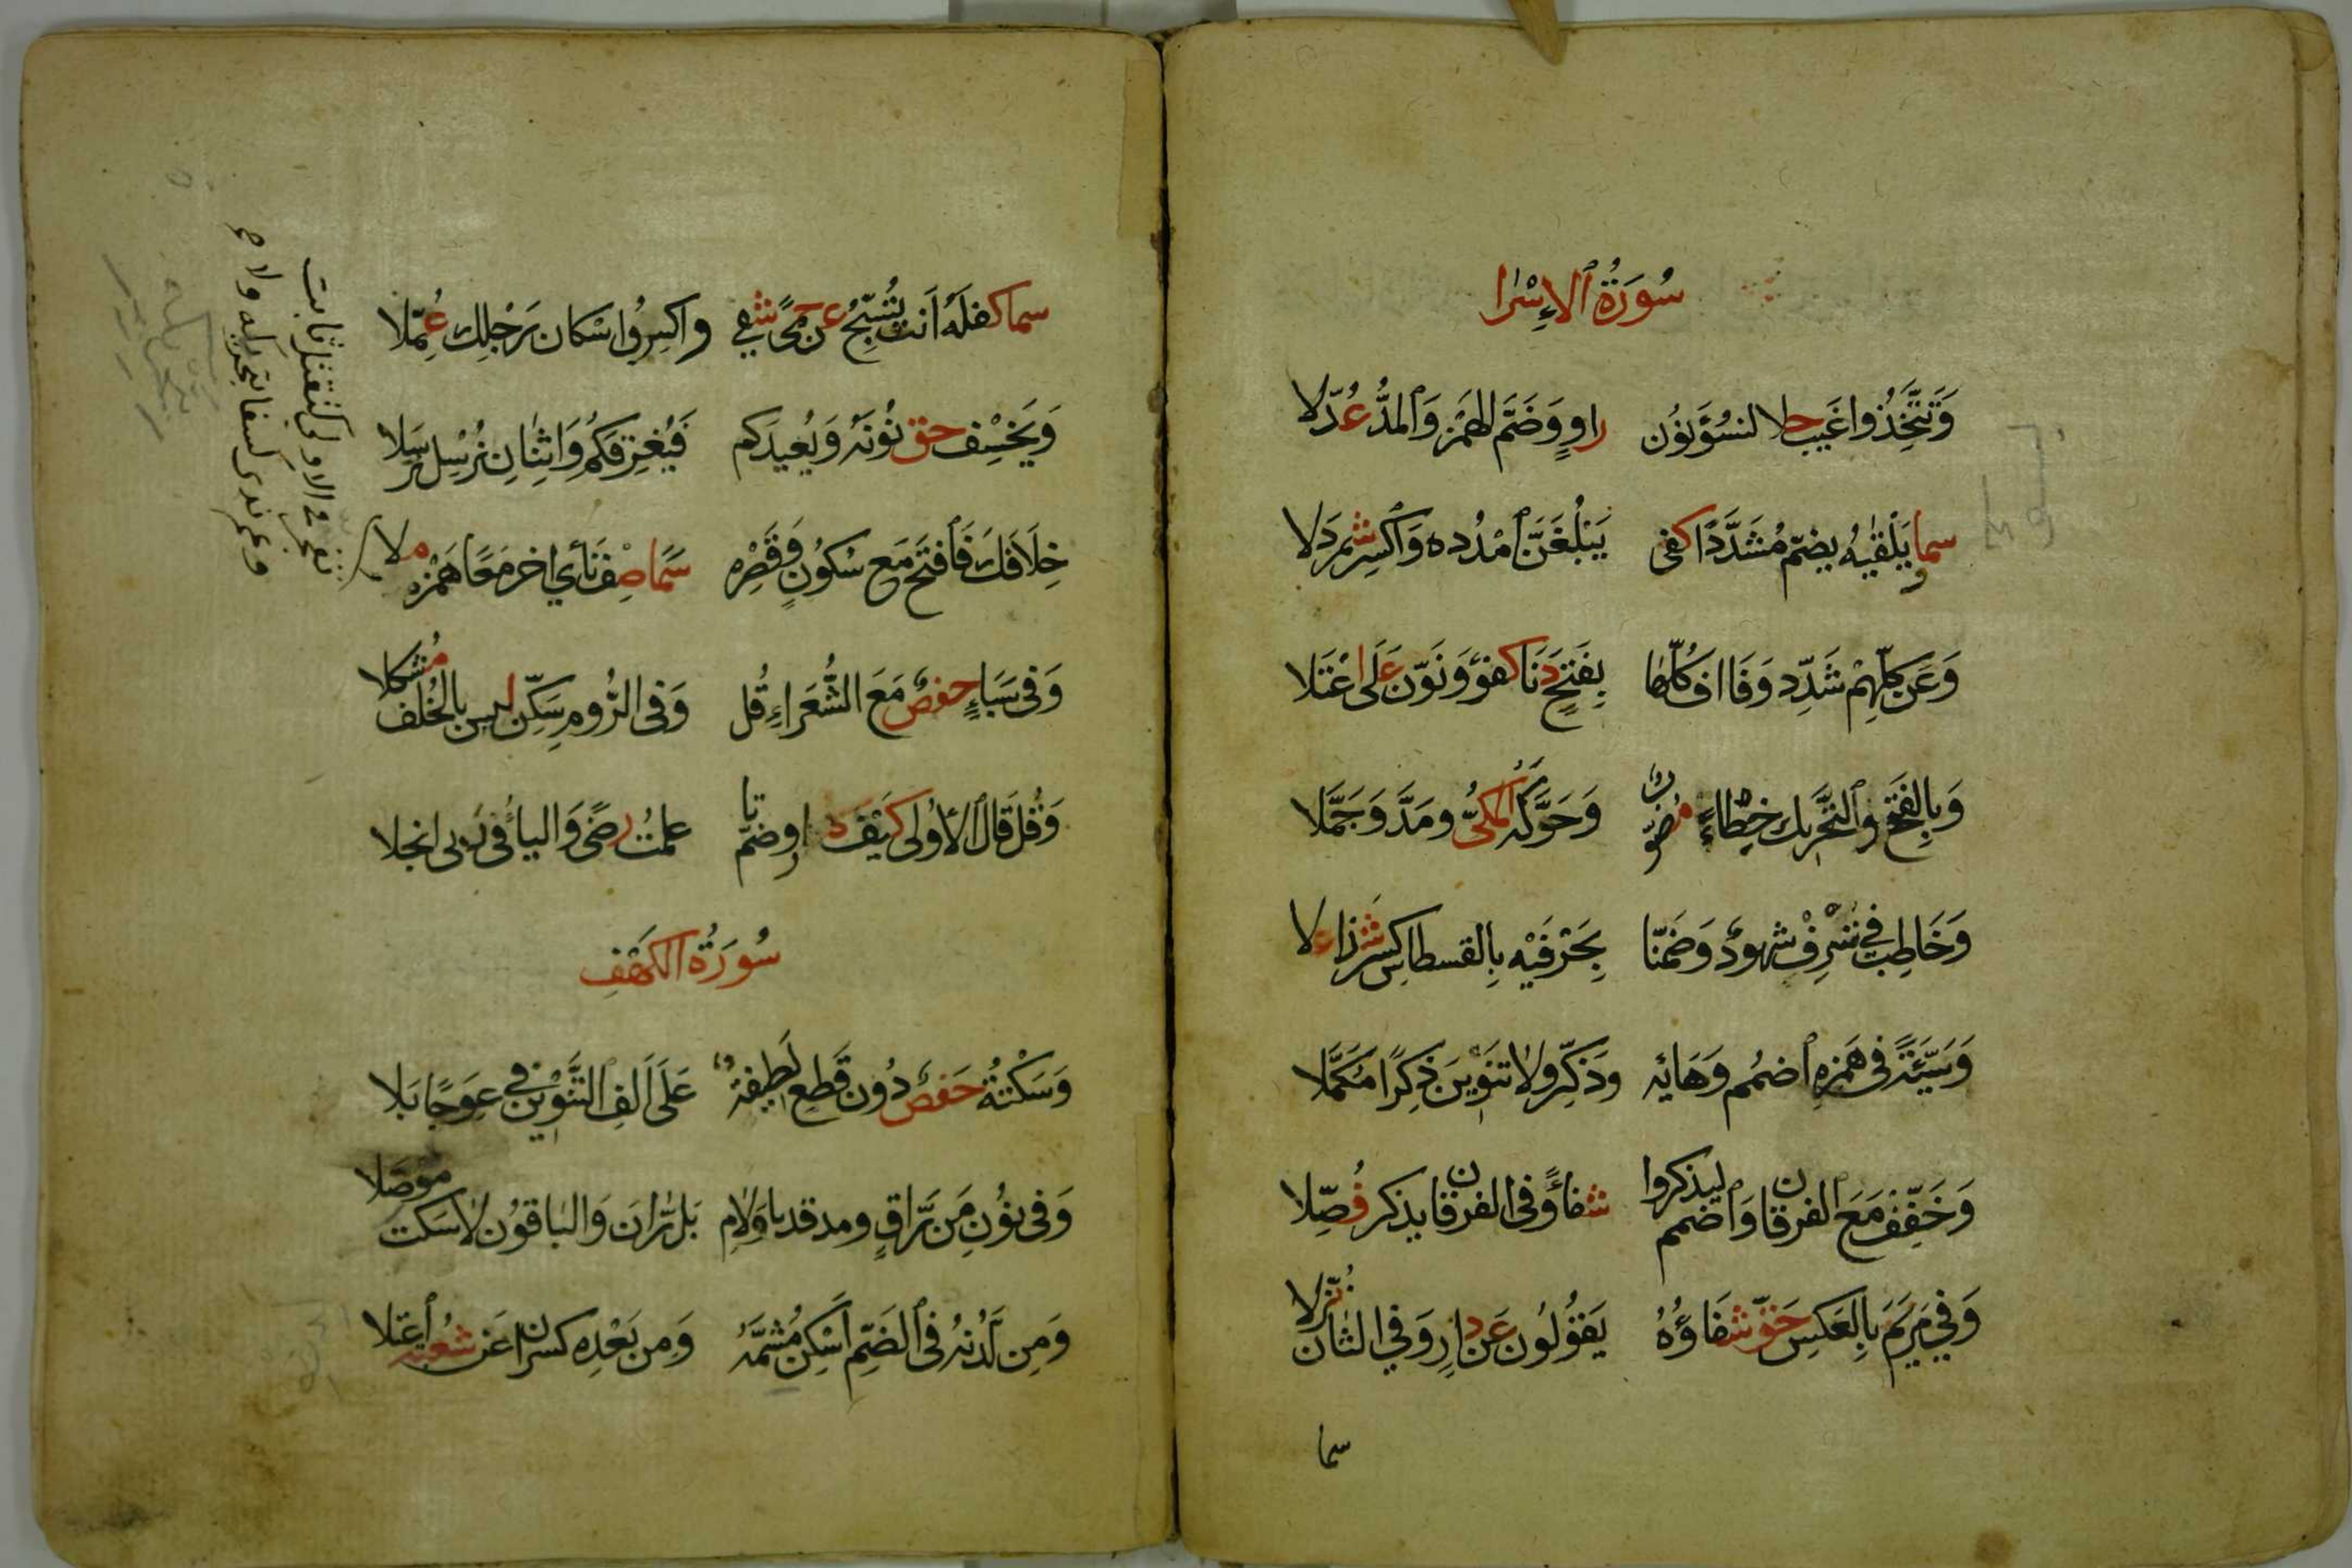 سُورَةُ ٱلإِسْرا
وَتَتَّخِذُوا غَيب حلا لنسُؤَ نوُن راوٍ وَضَمّ الهَمْزِ وَٱلمدُّ عُدّلا
سما وَيُلَقّيهُ يضمّ مُشَدَّدًا كفى يَبْلُغَنَّ ٱمْدُده وَٱكسِر شمرَدَلا
وَعَن كلّهِمْ شَدِّد وَفَا اف كُلّها بِفَتحٍ دَنَا كفؤ وَنَوّن عَلَى اعْتَلا
وَبِالفَتحِ وَٱلتَّحرِيك خِطْاءً مُصَوّبٌ وَحَرَّكَهُ المكىُّ ومَدَّ وَجَمَّلا
وَخَاطِب فِي نُسْرِفْ شهودٌ وَضَمّنا بِحَرْفَيْه بِالقسطاس كسر شَذاءٍ علا
وَسَيِّئَةً فى هَمزِهِ ٱضمُم وَهَائِه وَذَكِّر ولا تنَوِينَ ذِكرًا مُكمَّلا
وَخَفِّفْ مَعَ ٱلفرقان وَٱضمم ليذكروا شفاءً وَفى الفرقان يذكر فُصِّلا
وَفِي مَريَمَ بِالعَكسِ حَقّ شفَاؤُهُ يَقوُلوُن عَن دارٍ وَفِي الثان نُزّلا
سما
سما كفلهُ أَنث يُسَبّحُ عن حِمًى شفي واكسِروُا اسكان رَجلِك عُمّلا
وَيَخسِف حق نُونَهُ وَيُعِيدَكم فَيُغرِقَكُمُ وَاثنانِ نُرْسِل نُرسِلا
خِلَافَك فَٱفتَح مَع سُكونٍ وَقَصْره سَمَا صِف نَأى اخر مَعًا هَمزه ملا
تفجّر في الاولى كتقتل ثابت
وعمّ ندى كسفا بتحريكه ولا صح
وَفى سَبَاءٍ حفصٌ مَعَ الشُّعَراءِ قُل وَفى الرُّوم سَكِّن ليس بالخُلف مُشكلا
وَقُل قَالَ ٱلأولى كَيْفَ دار وضمّ تا علمتُ رِضًى وَاليا ءُ فى رَبى انجلا
سُورَةُ الكَهْفِ
وَسَكْتَةُ حَفصٍ دُون قَطع لَطِيفَةٌ عَلَى أَلفِ ٱلتَّنوِين فِي عِوَجًا بَلا
وَفى نوُنِ مَن رَّاقٍ ومرقدنا وَلامِ بَل رَّانَ وَالباقوُن لا سَكت موصَلا
وَمِن لَدُنهُ فى ٱلضَمِّ أَسْكِن مُشمَّهُ وَمِن بَعْدِه كسران عَن شُعْبة ٱعتلا